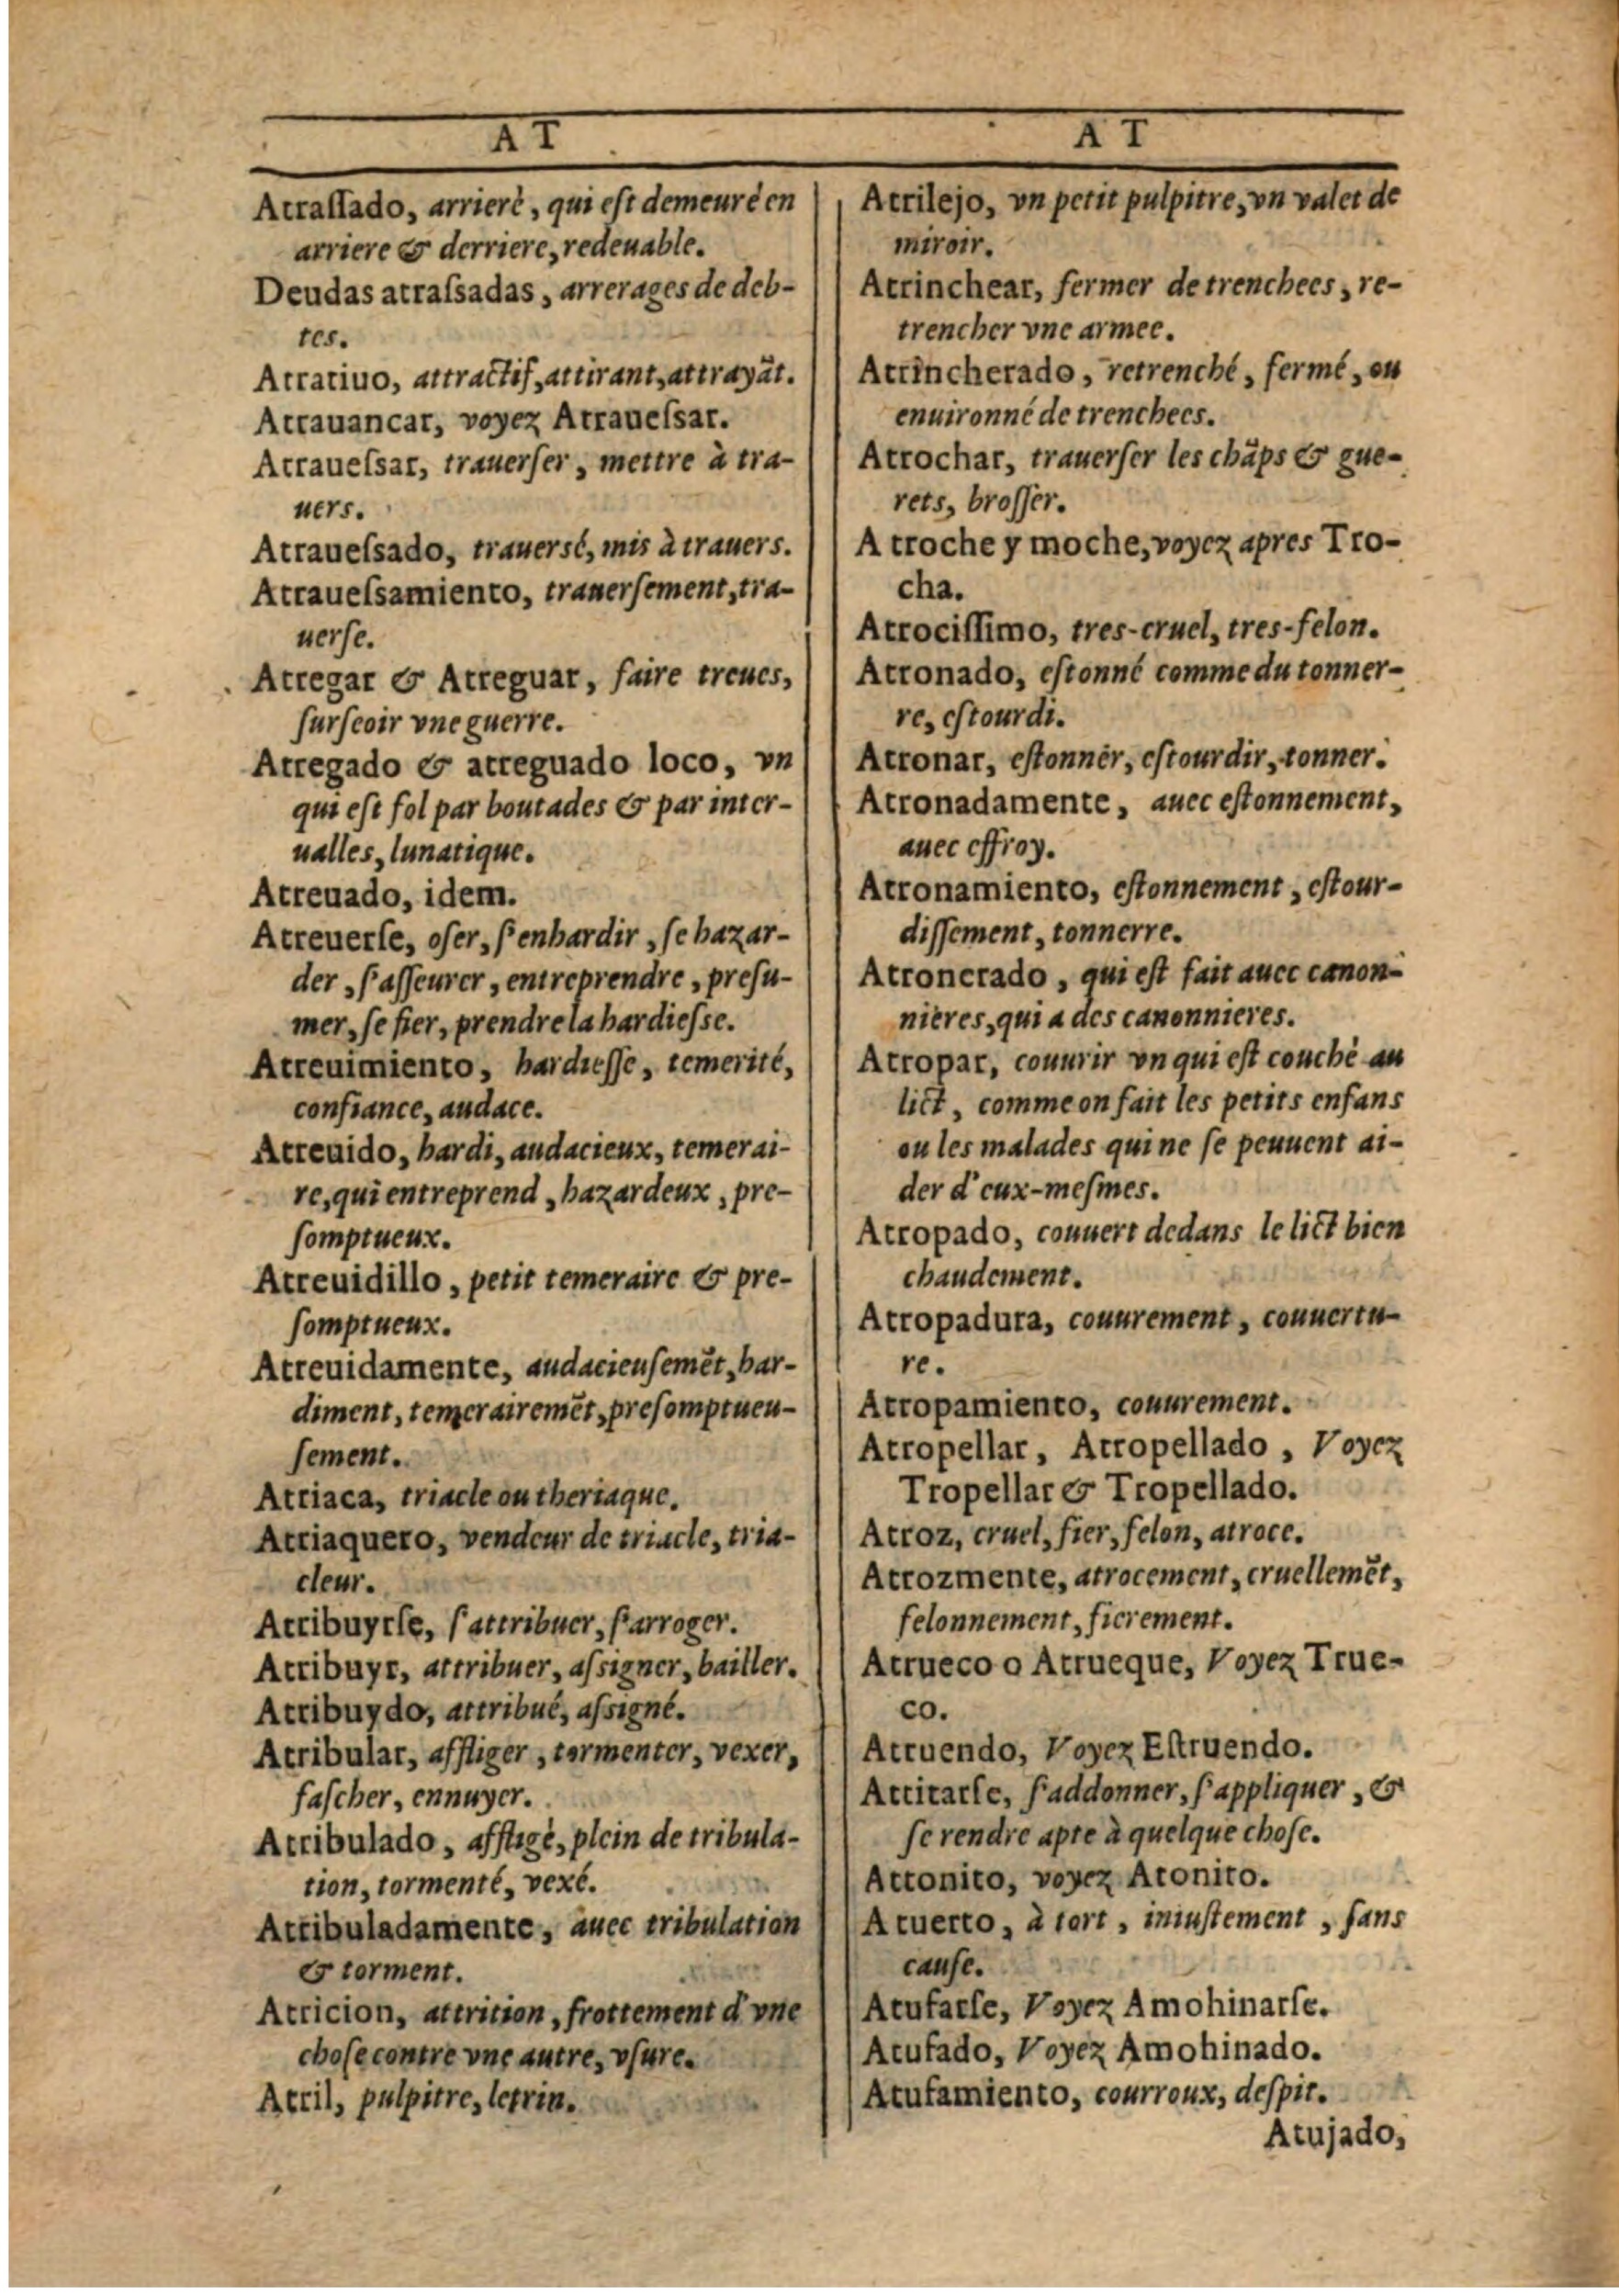 A T
Atraſſado, arrieré, qui eſt demeuré en
arriere & derriere, redeuable.
Deudas atraſsadas, arrerages de deb-
tes.
Atratiuo, attractif, attirant, attrayãt.
Atrauancar, voyez Atraueſsar.
Atraueſsar, trauerſer, mettre à tra-
uers.
Atraueſsado, trauersé, mis à trauers.
Atraueſsamiento, trauerſement, tra-
uerſe.
Atregar & Atreguar, faire treues,
ſurſeoir vne guerre.
Atregado & atreguado loco, vn
qui eſt fol par boutades & par inter-
ualles, lunatique.
Atreuado, idem.
Atreuerſe, oſer, ſ'enhardir, ſe hazar-
der, ſ'aſſeurer, entreprendre, preſu-
mer, ſe fier, prendre la hardieſse.
Atreuimiento, hardieſſe, temerité,
confiance, audace.
Atreuido, hardi, audacieux, temerai-
re, qui entreprend, hazardeux, pre-
ſomptueux.
Atreuidillo, petit temeraire & pre-
ſomptueux.
Atreuidamente, audacieuſemẽt, har-
diment, temerairemẽt, preſomptueu-
ſement.
Atriaca, triacle ou theriaque.
Atriaquero, vendeur de triacle, tria-
cleur.
Atribuyrſe, ſ'attribuer, ſ'arroger.
Atribuyr, attribuer, aſsigner, bailler.
Atribuydo, attribué, aſsigné.
Atribular, affliger, tormenter, vexer,
faſcher, ennuyer.
Atribulado, affligé, plein de tribula-
tion, tormenté, vexé.
Atribuladamente, auec tribulation
& torment.
Atricion, attrition, frottement d'vne
choſe contre vne autre, vſure.
Atril, pulpitre, letrin.
A T
Atrilejo, vn petit pulpitre, vn valet de
miroir.
Atrinchear, fermer de trenchees, re-
trencher vne armee.
Atrincherado, retrenché, fermé, ou
enuironné de trenchees.
Atrochar, trauerſer les chãps & gue-
rets, broſſer.
A troche y moche, voyez apres Tro-
cha.
Atrociſſimo, tres-cruel, tres-felon.
Atronado, eſtonné comme du tonner-
re, eſtourdi.
Atronar, eſtonner, eſtourdir, tonner.
Atronadamente, auec eſtonnement,
auec effroy.
Atronamiento, eſtonnement, eſtour-
diſſement, tonnerre.
Atronerado, qui eſt fait auec canon-
nieres, qui a des canonnieres.
Atropar, couurir vn qui eſt couché au
lict, comme on fait les petits enfans
ou les malades qui ne ſe peuuent ai-
der d'eux-meſmes.
Atropado, couuert dedans le lict bien
chaudement.
Atropadura, couurement, couuertu-
re.
Atropamiento, couurement.
Atropellar, Atropellado, Voyez
Tropellar & Tropellado.
Atroz, cruel, fier, felon, atroce.
Atrozmente, atrocement, cruellemẽt,
felonnement, fierement.
Atrueco o Atrueque, Voyez True-
co.
Atruendo, Voyez Eſtruendo.
Attitarſe, ſ'addonner, ſ'appliquer, &
ſe rendre apte à quelque choſe.
Attonito, voyez Atonito.
A tuerto, à tort, iniuſtement, ſans
cauſe.
Atufarſe, Voyez Amohinarſe.
Atufado, Voyez Amohinado.
Atufamiento, courroux, deſpit.
Atujado,